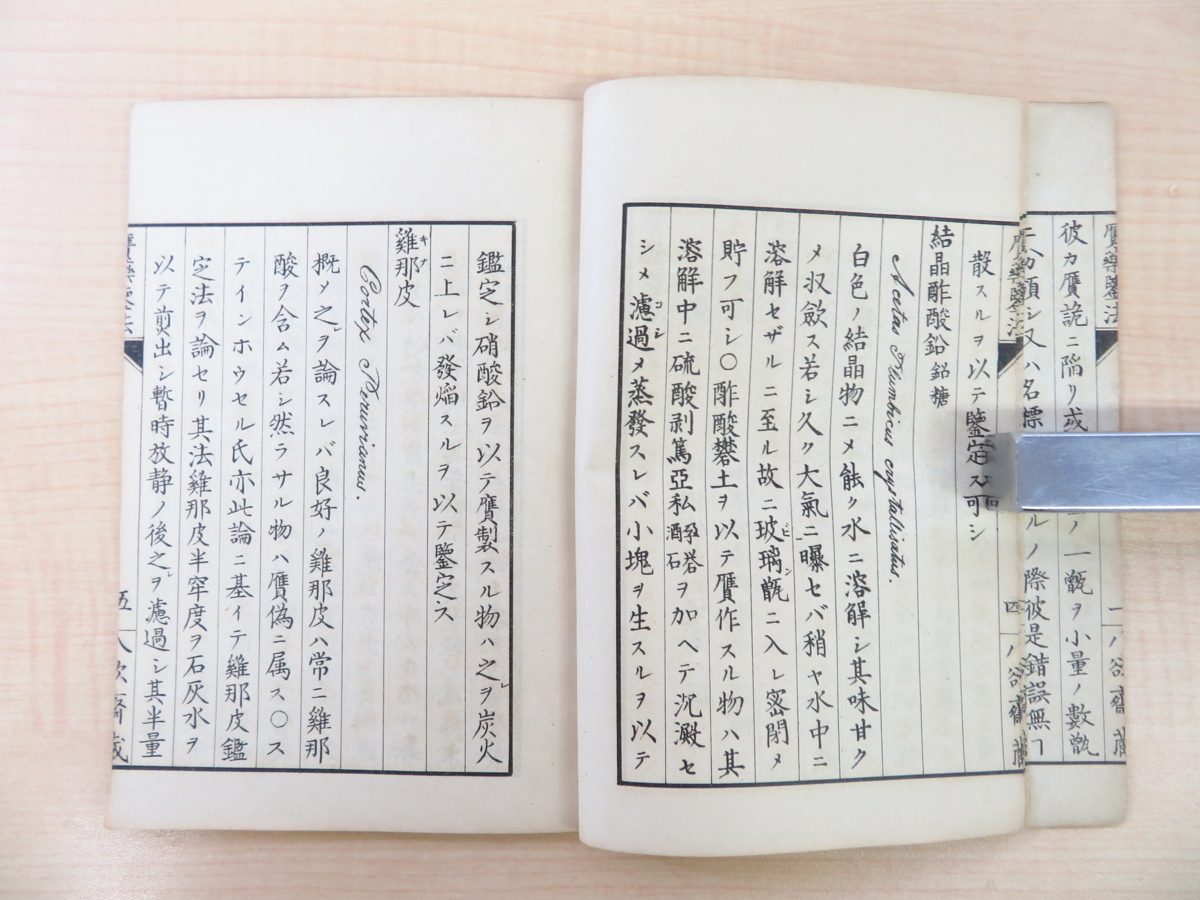 彼カ贋詭ニ陥リ或
ノ一甑ヲ小量ノ數甑
八欲齋藏
ハ名標
ノ際彼是錯誤無
贋藥鑒法
四
八欲齋藏
散スルヲ以テ鑒定ス可シ
結晶酢酸鉛 鉛糖
Acetas Plumbicus crystallisatus.
白色ノ結晶物ニメ能ク水ニ溶解シ其味甘ク
メ収歛ス若シ久ク大氣ニ曝セバ稍ヤ水中ニ
溶解セザルニ至ル故ニ玻璃甑ニ入レ密閉メ
貯フ可シ〇酢酸礬土ヲ以テ贋作スル物ハ其
溶解中ニ硫酸剥篤亜私ヲ加ヘテ沉澱セ
シメ濾過メ蒸發スレバ小塊ヲ生スルヲ以テ
鑑定シ硝酸鉛ヲ以テ贋製スル物ハ之ヲ炭火
ニ上レバ發焔スルヲ以テ鑒定ス
雞那皮
Cortex Peruvianus.
概メ之ヲ論スレバ良好ノ雞那皮ハ常ニ雞那
酸ヲ含ム若シ然ラサル物ハ贋偽ニ属ス〇ス
テインホウセル氏亦此論ニ基イテ雞那皮鑑
定法ヲ論セリ其法雞那皮半穽度ヲ石灰水ヲ
以テ煎出シ暫時放静ノ後之ヲ濾過シ其半量
五
八欲齋藏